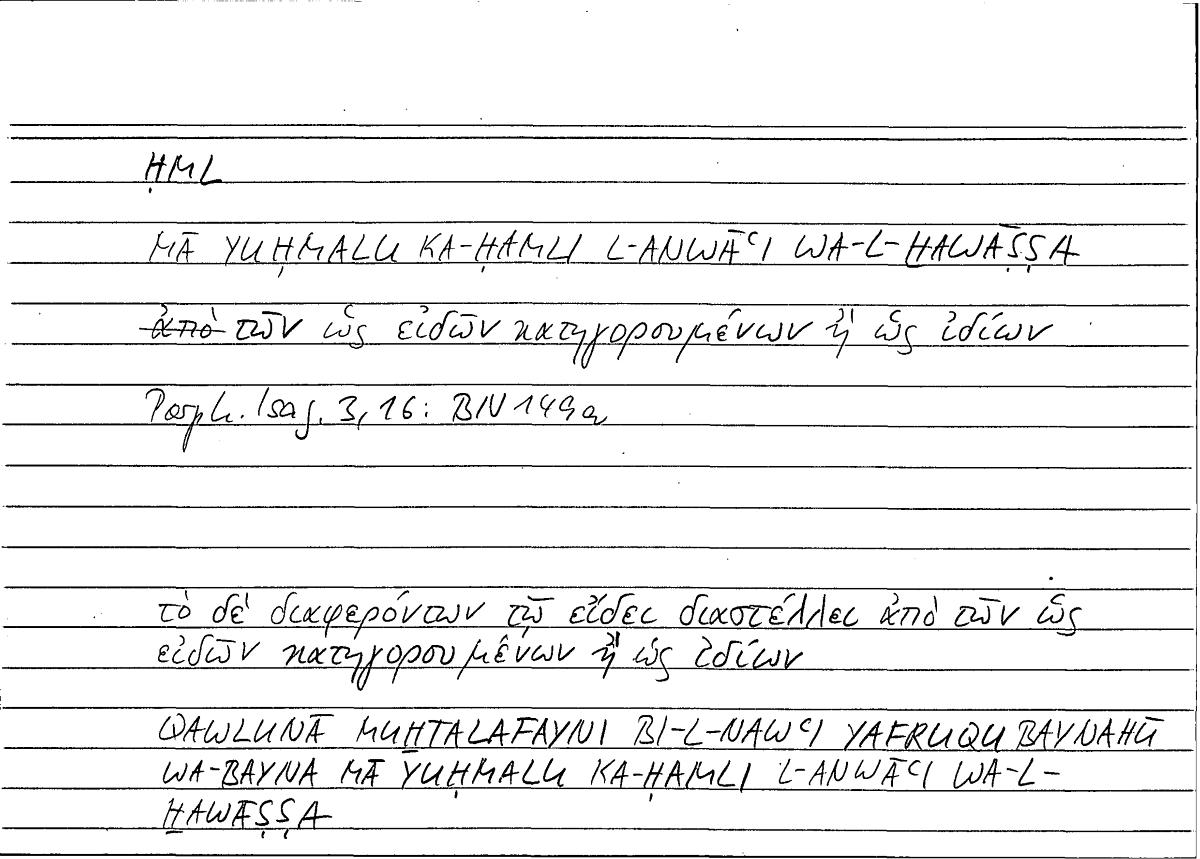 ḤML
MĀ YUḤMALU KA-ḤAMLI L-ANWĀʿI WA-L-ḪAWĀṢṢA
ἀπὸ τῶν ὡς εἰδῶν κατηγορουμένων ἢ ὡς ἰδίων
Porph. Isag. 3, 16: BN 149a
τὸ δὲ διαφερόντων τῷ εἴδει διαστέλλει ἀπὸ τῶν ὡς
εἰδῶν κατηγορουμένων ἢ ὡς ἰδίων
QAWLUNĀ MUḪTALAFAYNI BI-L-NAWʿI YAFRUQU BAYNAHŪ
WA-BAYNA MĀ YUḤMALU KA-ḤAMLI L-ANWĀʿI WA-L-
ḪAWĀṢṢA